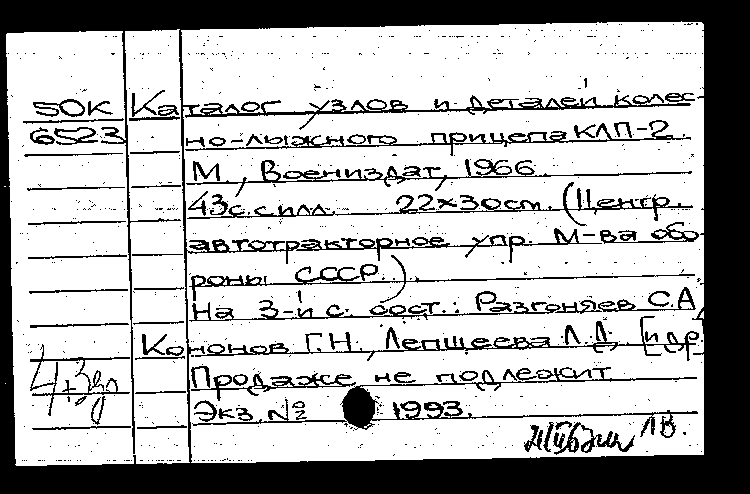 50К Каталог узлов и деталей колес-
6523 но-лыжного прицепа КЛП-2.
М., Воениздат, 1966.
43с. с илл. 22×30см. (Центр.
автотракторное упр. М-ва обо-
роны СССР.).
На 3-й с. сост.: Разгоняев С.А,
Кононов Г.Н., Лепщеева Л.Д, [и др.]
Продаже не подлежит
Экз. № 1993.